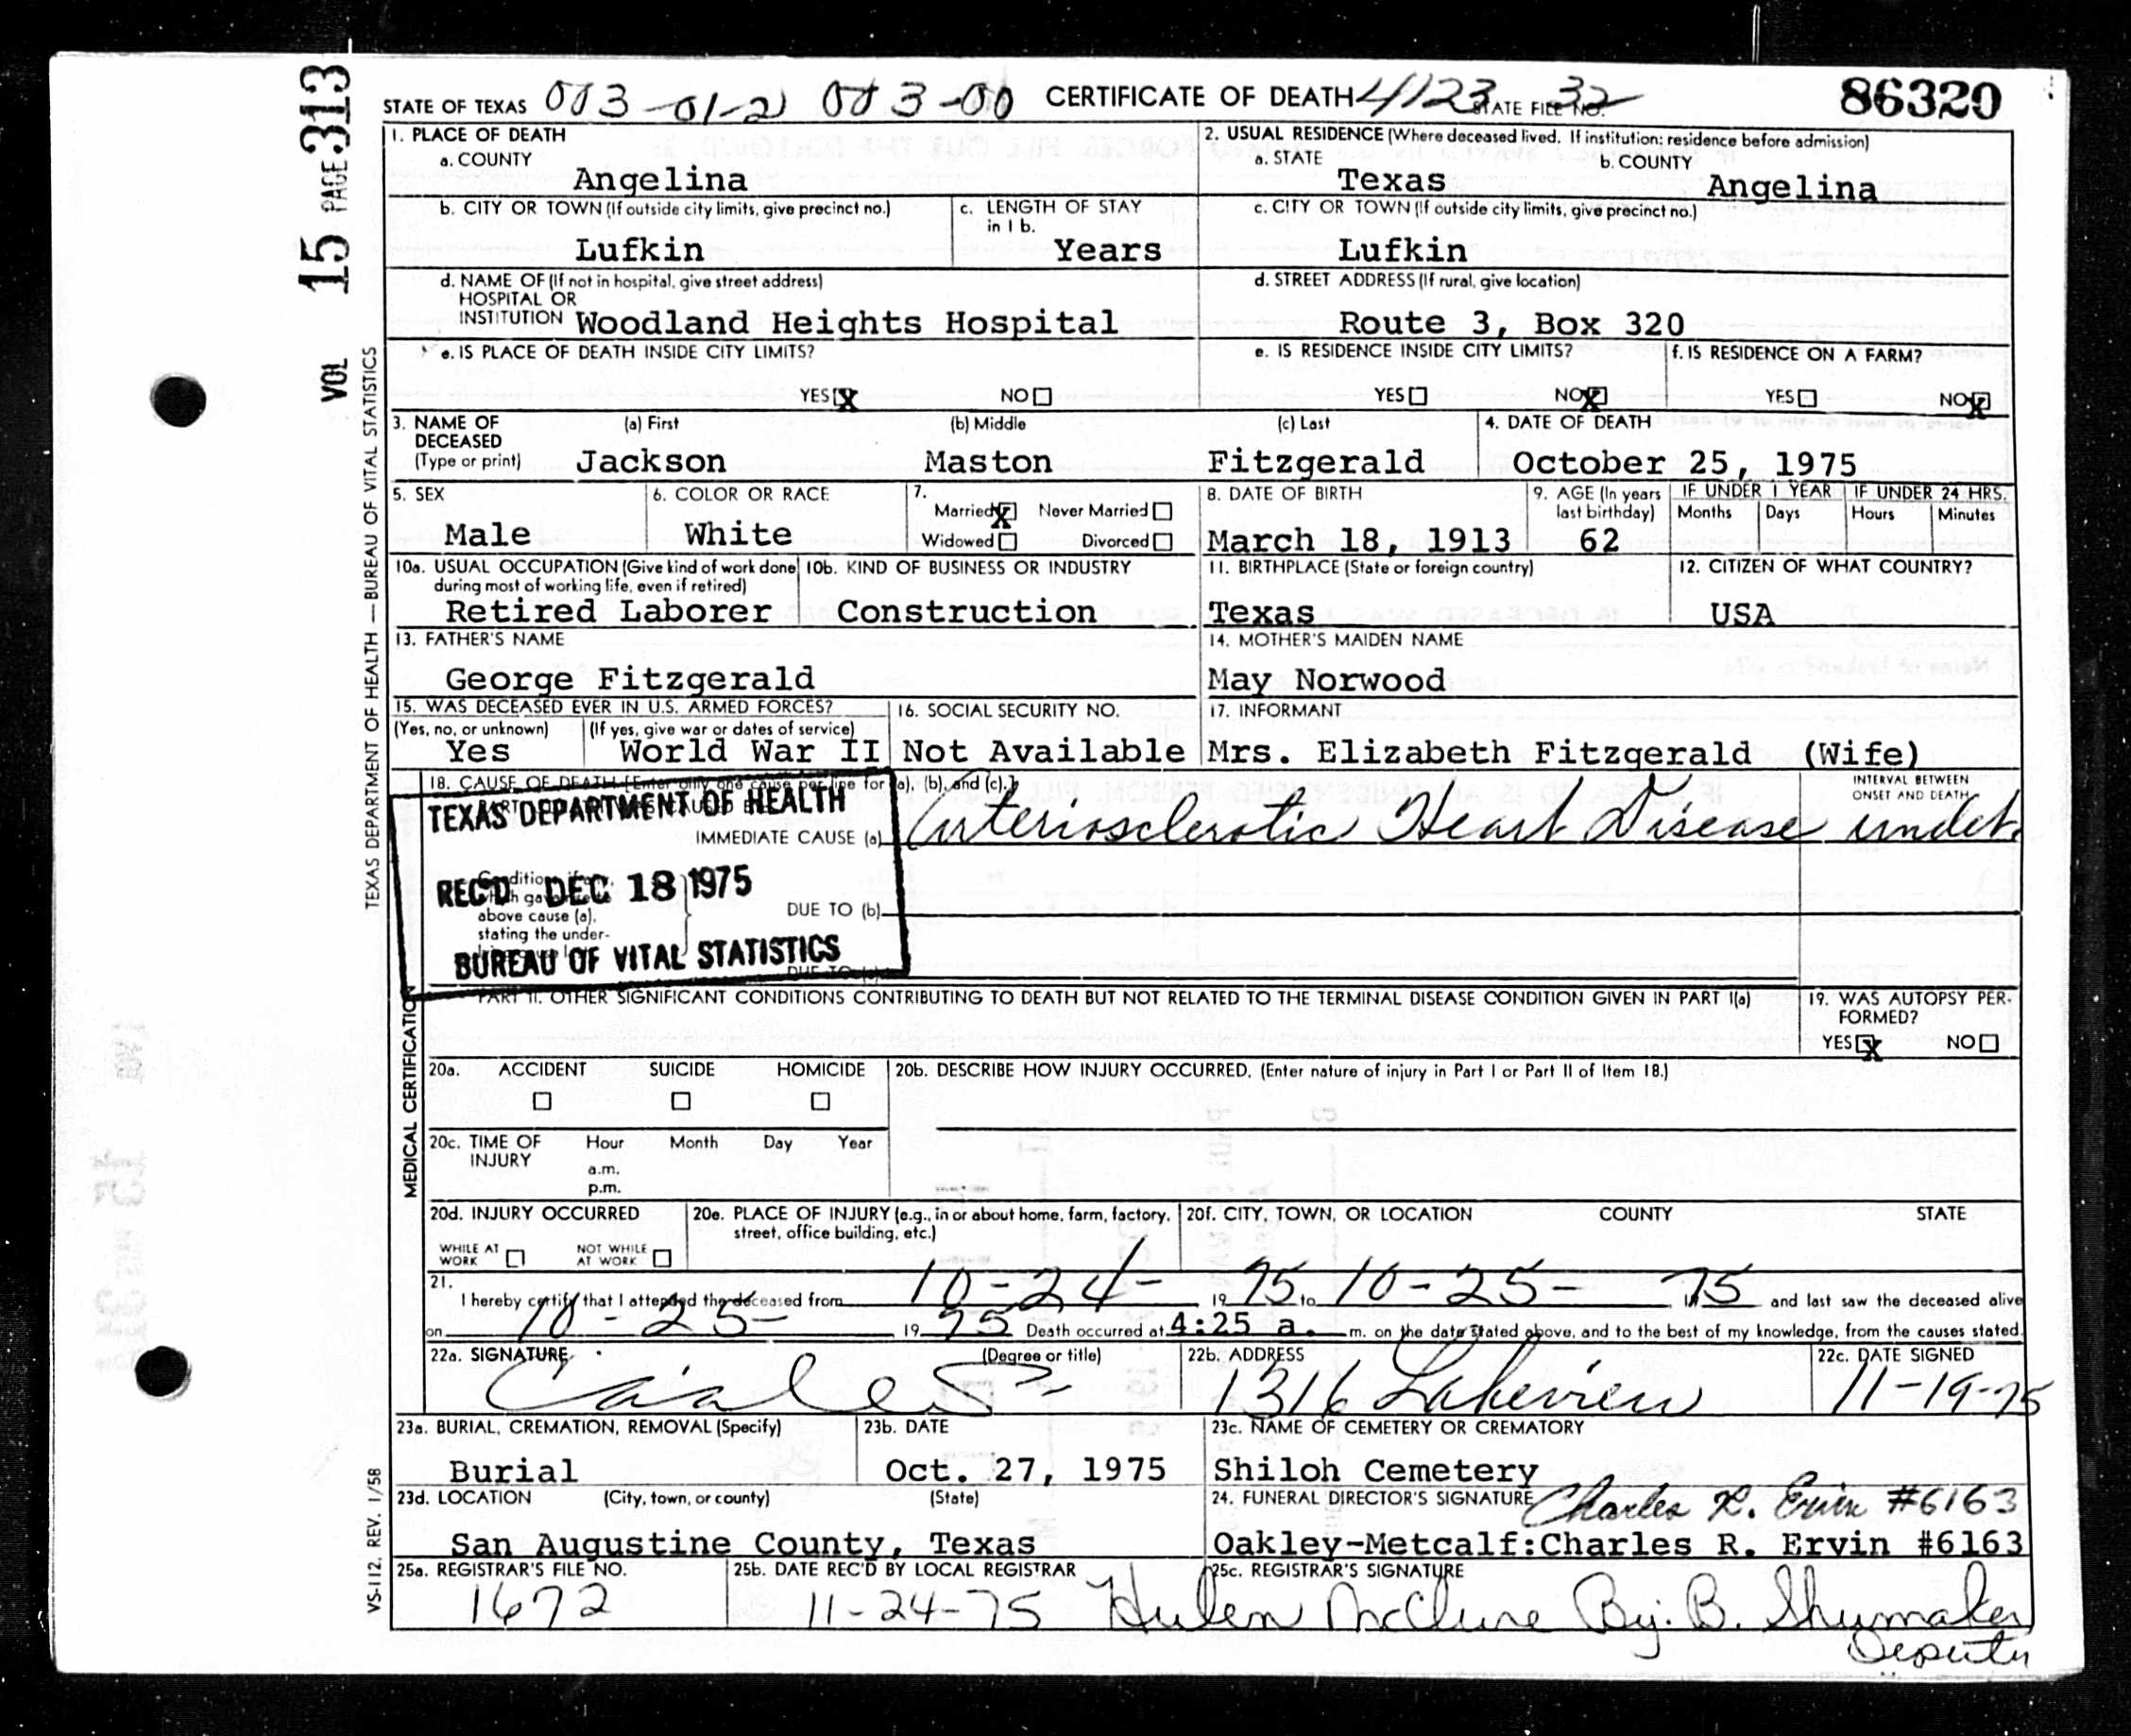 VOL 15 PAGE 313
TEXAS DEPARTMENT OF HEALTH — BUREAU OF VITAL STATISTICS
STATE OF TEXAS 003-01-2 003-00 CERTIFICATE OF DEATH 4123 STATE FILE NO. 32 86320
1. PLACE OF DEATH
2. USUAL RESIDENCE (Where deceased lived. If institution: residence before admission)
a. COUNTY
Angelina
a. STATE
Texas
b. COUNTY
Angelina
b. CITY OR TOWN (If outside city limits, give precinct no.)
Lufkin
c. LENGTH OF STAY
in 1 b.
Years
c. CITY OR TOWN (If outside city limits, give precinct no.)
Lufkin
d. NAME OF (If not in hospital, give street address)
HOSPITAL OR
INSTITUTION Woodland Heights Hospital
d. STREET ADDRESS (If rural, give location)
Route 3, Box 320
e. IS PLACE OF DEATH INSIDE CITY LIMITS?
YES X NO
e. IS RESIDENCE INSIDE CITY LIMITS?
YES NO X
f. IS RESIDENCE ON A FARM?
YES NO X
3. NAME OF
DECEASED
(Type or print)
(a) First (b) Middle (c) Last
Jackson Maston Fitzgerald
4. DATE OF DEATH
October 25, 1975
5. SEX
Male
6. COLOR OR RACE
White
7.
Married X Never Married
Widowed Divorced
8. DATE OF BIRTH
March 18, 1913
9. AGE (In years
last birthday)
62
IF UNDER 1 YEAR
Months Days
IF UNDER 24 HRS.
Hours Minutes
10a. USUAL OCCUPATION (Give kind of work done
during most of working life, even if retired)
Retired Laborer
10b. KIND OF BUSINESS OR INDUSTRY
Construction
11. BIRTHPLACE (State or foreign country)
Texas
12. CITIZEN OF WHAT COUNTRY?
USA
13. FATHER'S NAME
George Fitzgerald
14. MOTHER'S MAIDEN NAME
May Norwood
15. WAS DECEASED EVER IN U.S. ARMED FORCES?
(Yes, no, or unknown) (If yes, give war or dates of service)
Yes World War II
16. SOCIAL SECURITY NO.
Not Available
17. INFORMANT
Mrs. Elizabeth Fitzgerald (Wife)
MEDICAL CERTIFICATION
18. CAUSE OF DEATH [Enter only one cause per line for (a), (b), and (c).]
INTERVAL BETWEEN
ONSET AND DEATH
TEXAS DEPARTMENT OF HEALTH
IMMEDIATE CAUSE (a) Arteriosclerotic Heart Disease undet.
REC'D DEC 18 1975
above cause (a),
stating the under-
DUE TO (b)
BUREAU OF VITAL STATISTICS
DUE TO (c)
PART II. OTHER SIGNIFICANT CONDITIONS CONTRIBUTING TO DEATH BUT NOT RELATED TO THE TERMINAL DISEASE CONDITION GIVEN IN PART I(a)
19. WAS AUTOPSY PER-
FORMED?
YES X NO
20a. ACCIDENT SUICIDE HOMICIDE
20b. DESCRIBE HOW INJURY OCCURRED. (Enter nature of injury in Part I or Part II of Item 18.)
20c. TIME OF
INJURY
Hour Month Day Year
a.m.
p.m.
20d. INJURY OCCURRED
WHILE AT
WORK
NOT WHILE
AT WORK
20e. PLACE OF INJURY (e.g., in or about home, farm, factory,
street, office building, etc.)
20f. CITY, TOWN, OR LOCATION COUNTY STATE
21.
I hereby certify that I attended the deceased from 10-24- 19 75 to 10-25- 19 75 and last saw the deceased alive
on 10-25- 19 75 Death occurred at 4:25 a. m. on the date stated above, and to the best of my knowledge, from the causes stated.
22a. SIGNATURE (Degree or title)
22b. ADDRESS
1316 Lakeview
22c. DATE SIGNED
11-19-75
23a. BURIAL, CREMATION, REMOVAL (Specify)
Burial
23b. DATE
Oct. 27, 1975
23c. NAME OF CEMETERY OR CREMATORY
Shiloh Cemetery
23d. LOCATION (City, town, or county) (State)
San Augustine County, Texas
24. FUNERAL DIRECTOR'S SIGNATURE Charles R. Ervin #6163
Oakley-Metcalf:Charles R. Ervin #6163
25a. REGISTRAR'S FILE NO.
1672
25b. DATE REC'D BY LOCAL REGISTRAR
11-24-75
25c. REGISTRAR'S SIGNATURE
Hulen McClure By: B. Shumaker
Deputy
VS-112, REV. 1/58